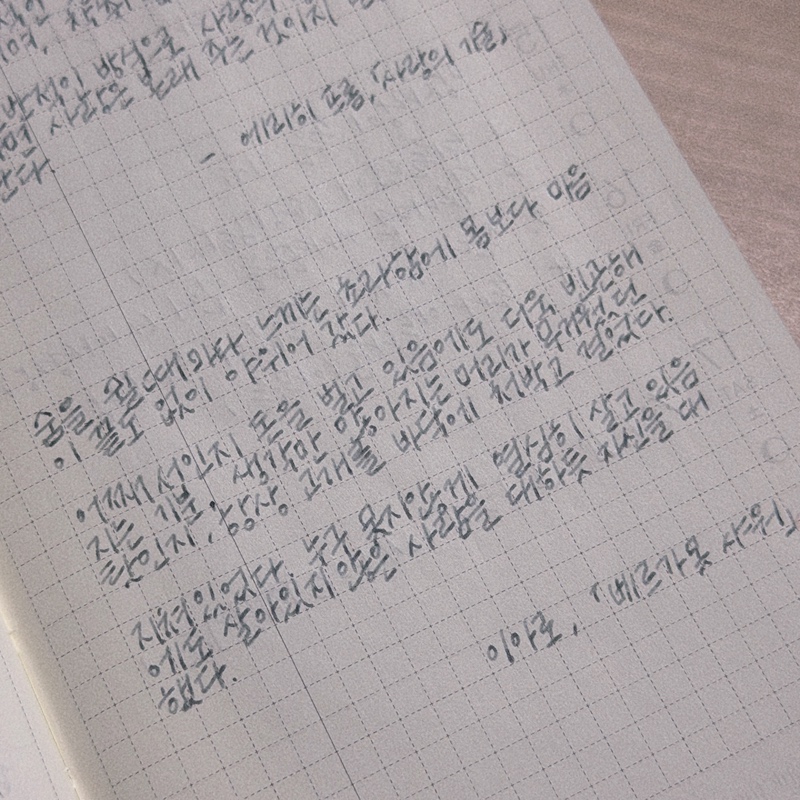 사랑의
반적인 방식으로 사랑의
사랑은 본래 주는 것이지
한다.
- 에리히 프롬, 「사랑의 기술」
숨을 쉴 때마다 느끼는 뇨라함에 몸보다 마음
이 쓸도 없이 야위어 갔다.
어째서인지 돈을 벌고 있음에도 더욱 비곤해
지는 기분. 생각만 많아지는 머리가 무거웠던
탓인지, 항상 고개를 바닥에 처박고 걸었다.
지쳐있었다. 누구 못지않게 열심히 살고 있음
에도 살아있지 않은 사람을 대하듯 자신을 대
했다.
이아로, 「베르가못 샤워」